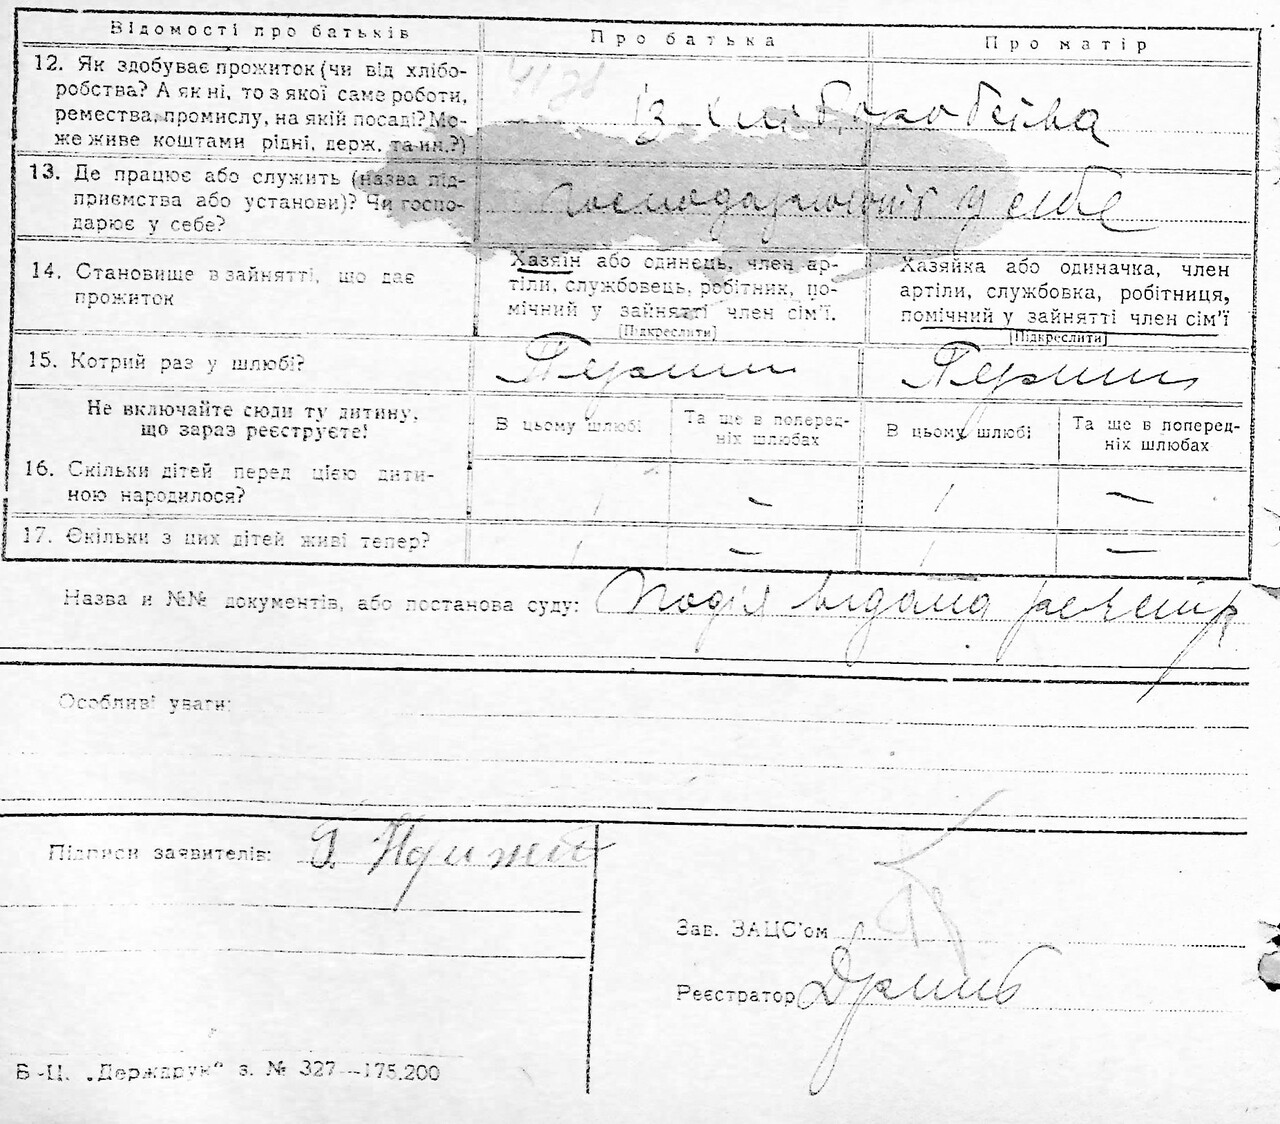 Відомості про батьків
Про батька
Про матір
12. Як здобуває прожиток (чи від хлібо-
робства? А як ні, то з якої саме роботи,
ремества, промислу, на якій посаді? Мо-
же живе коштами рідні, держ. та ин.?)
із хліборобства
13. Де працює або служить (назва під-
приємства або установи)? Чи госпо-
дарює у себе?
у себе
14. Становище в зайнятті, що дає
прожиток
Хазяїн або одинець, член ар-
тіли, службовець, робітник, по-
мічний у зайнятті член сім'ї.
[Підкреслити]
Хазяйка або одиначка, член
артіли, службовка, робітниця,
помічний у зайнятті член сім'ї
[Підкреслити]
15. Котрий раз у шлюбі?
Перший
Перший
Не включайте сюди ту дитину,
що зараз реєструєте!
В цьому шлюбі
Та ще в поперед-
ніх шлюбах
В цьому шлюбі
Та ще в поперед-
ніх шлюбах
16. Скільки дітей перед цією дити-
ною народилося?
1
—
1
—
17. Скільки з цих дітей живі тепер?
1
—
1
—
Назва и №№ документів, або постанова суду:
Особливі уваги:
Підписи заявителів:
Зав. ЗАЦС'ом
Реєстратор
Б-Ц. „Держдрук“ з. № 327—175.200